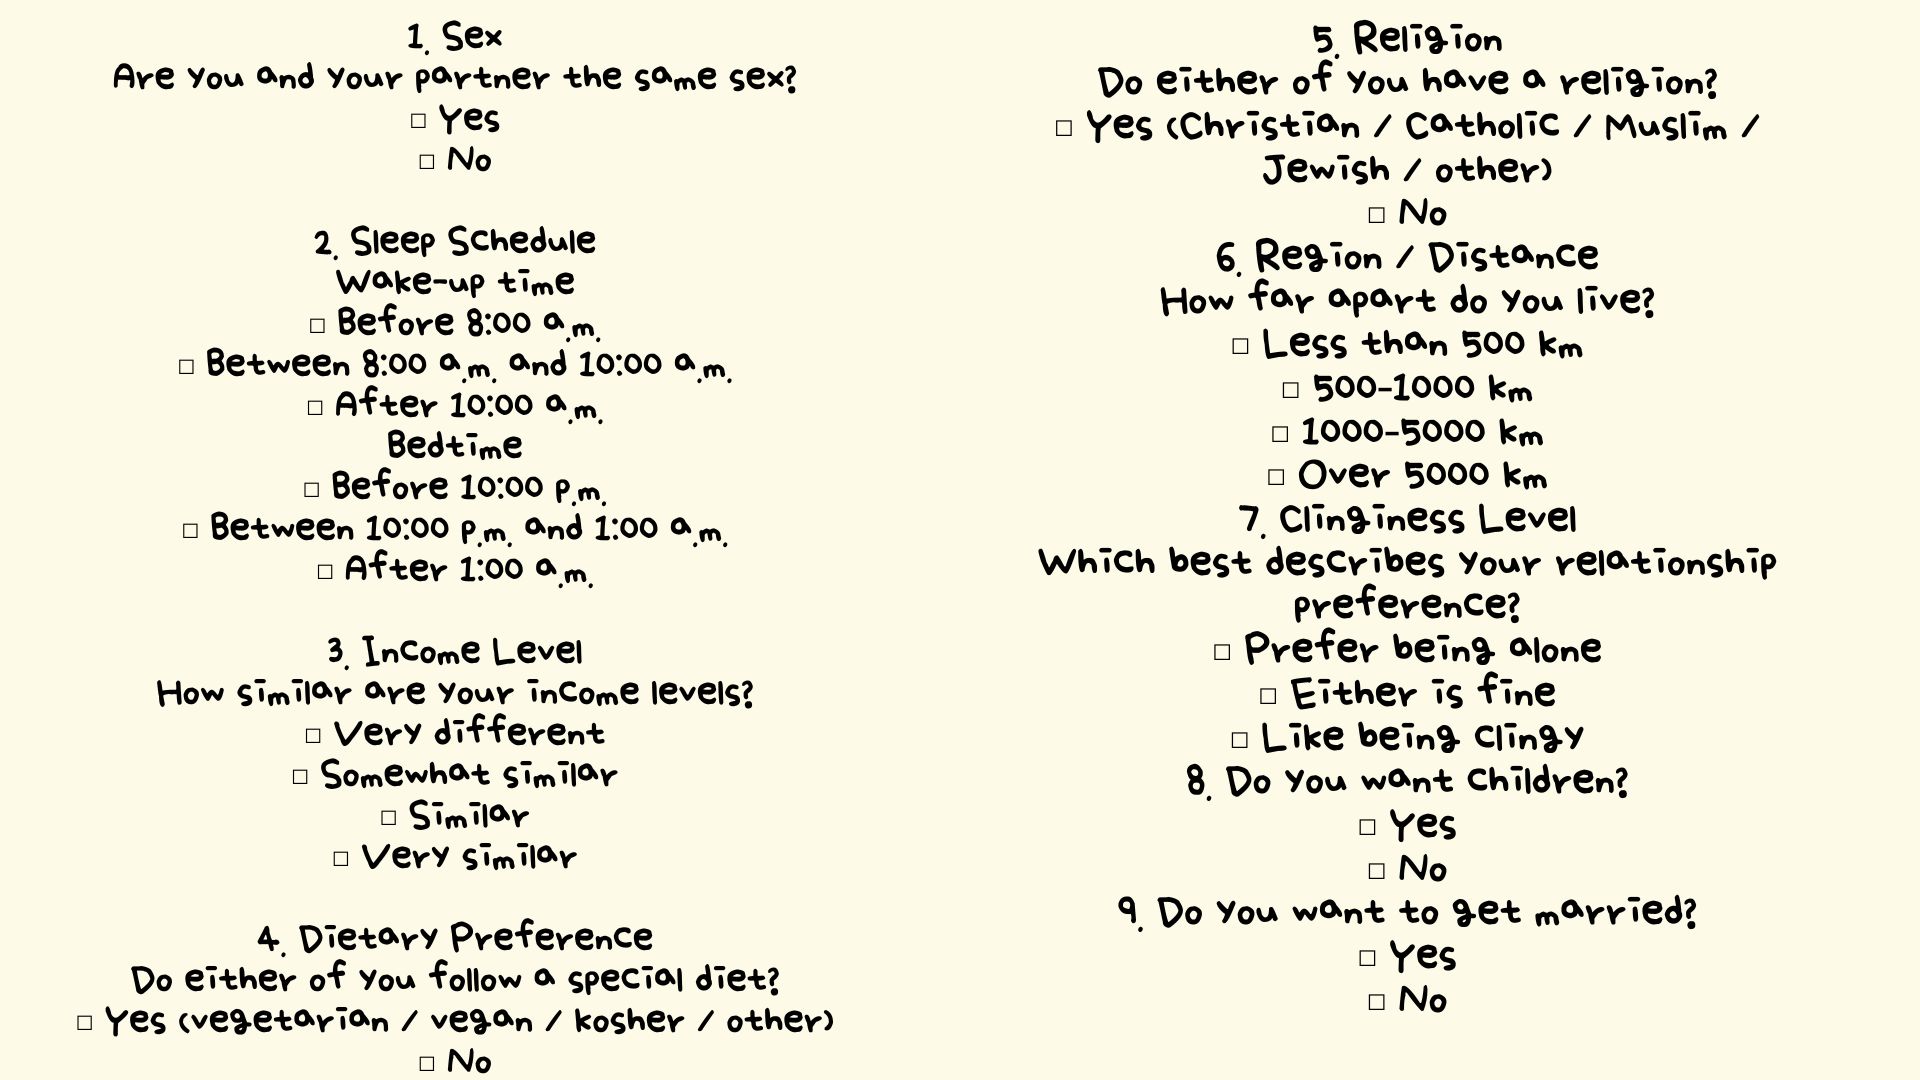 1. Sex
Are you and your partner the same sex?
□ Yes
□ No
2. Sleep Schedule
Wake-up time
□ Before 8:00 a.m.
□ Between 8:00 a.m. and 10:00 a.m.
□ After 10:00 a.m.
Bedtime
□ Before 10:00 p.m.
□ Between 10:00 p.m. and 1:00 a.m.
□ After 1:00 a.m.
3. Income Level
How similar are your income levels?
□ Very different
□ Somewhat similar
□ Similar
□ Very similar
4. Dietary Preference
Do either of you follow a special diet?
□ Yes (vegetarian / vegan / kosher / other)
□ No
5. Religion
Do either of you have a religion?
□ Yes (Christian / Catholic / Muslim /
Jewish / other)
□ No
6. Region / Distance
How far apart do you live?
□ Less than 500 km
□ 500-1000 km
□ 1000-5000 km
□ Over 5000 km
7. Clinginess Level
Which best describes your relationship
preference?
□ Prefer being alone
□ Either is fine
□ Like being clingy
8. Do you want children?
□ Yes
□ No
9. Do you want to get married?
□ Yes
□ No